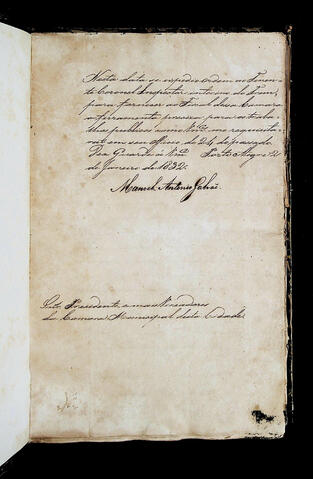 Nesta data se expedio ordem ao Tenen-
te Coronel Inspector interino do Trem,
para fornecer ao Fiscal dessa Camara
a ferramenta precisa para os traba-
lhos publicos como V.mces me requisita-
rão em seu officio de 24 do passado.
Deos Guarde a V.mces Porto Alegre
de Janeiro de 1832.
Manoel Antonio Galvão
Snrs. Presidente, e mais Vereadores
da Camara Municipal desta Cidade.